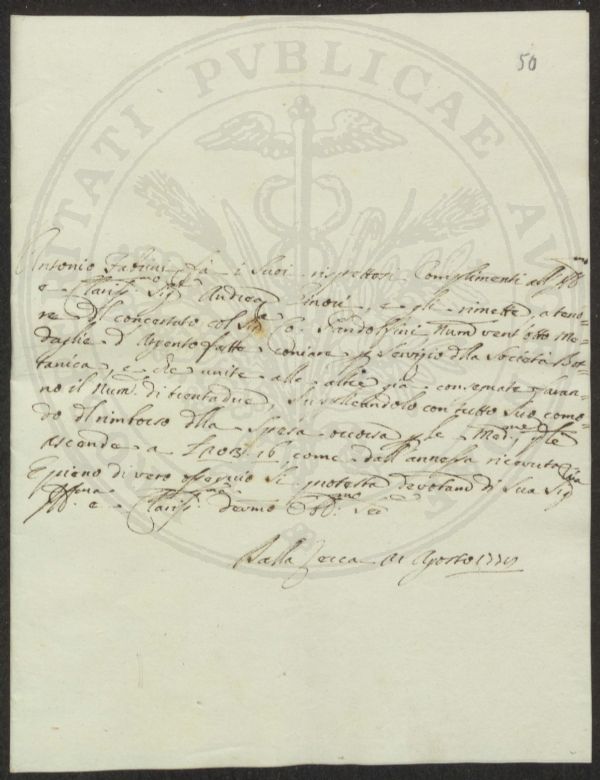 50
PVBLICAE
Antonio Fabrini fà i Suoi rispettosi Complimenti all Ill.mo
e Clariss.mo Sig.re Andrea Ginori, e gli rimette, a teno=
re del concertato col Sig.re Pandolfini Num.o vent'otto Me=
daglie d'Argento fatte coniare p Servizio della Società Bot=
tanica, e che unite alle altre già consegnate faran=
no il Num.o di trentadue, Supplicandolo con tutto Suo como=
do del rimborso della Spesa occorsa p le Med.me che
ascende a come dall'annessa ricevuta
E pieno di vero ossequio Si protesta devotam.e di Sua Sig.ria
Ill.ma e Clariss.ma devmo Obb.mo Ser.
Dalla Zecca Agosto